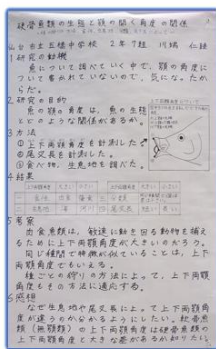 硬骨魚類の生態と顎の開く角度の関係
山台市立五橋中学校 2年7組 川端 仁
1 研究の動機
魚について調べていく中で、顎の角度に
ついて書かれていないので、気になったか
らだ。
2 研究の目的
魚の顎の角度は、魚の生態
とどのような関係があるか。
3 方法
① 上下両顎角度を計測した
② 尾叉長を計測した。
③ 食べ物、生息地を調べた
4 結果
5 考察
肉食魚類は、敏速に動き回る動物を捕え
るために上下両顎角度が大きいのだろう。
同じ種間で特徴が似ていることは、上下
両顎角度でもいえる。
種ごとの狩りの方法によって、上下両顎
角度もその方法に適応する。
6 感想
なぜ生息地や尾叉長によって上下両顎角
度が違うのかわかるようにしたい。軟骨魚
類(無顎類)の上下両顎角度は硬骨魚類の
上下両顎角度と大きな差があるか知りたい。